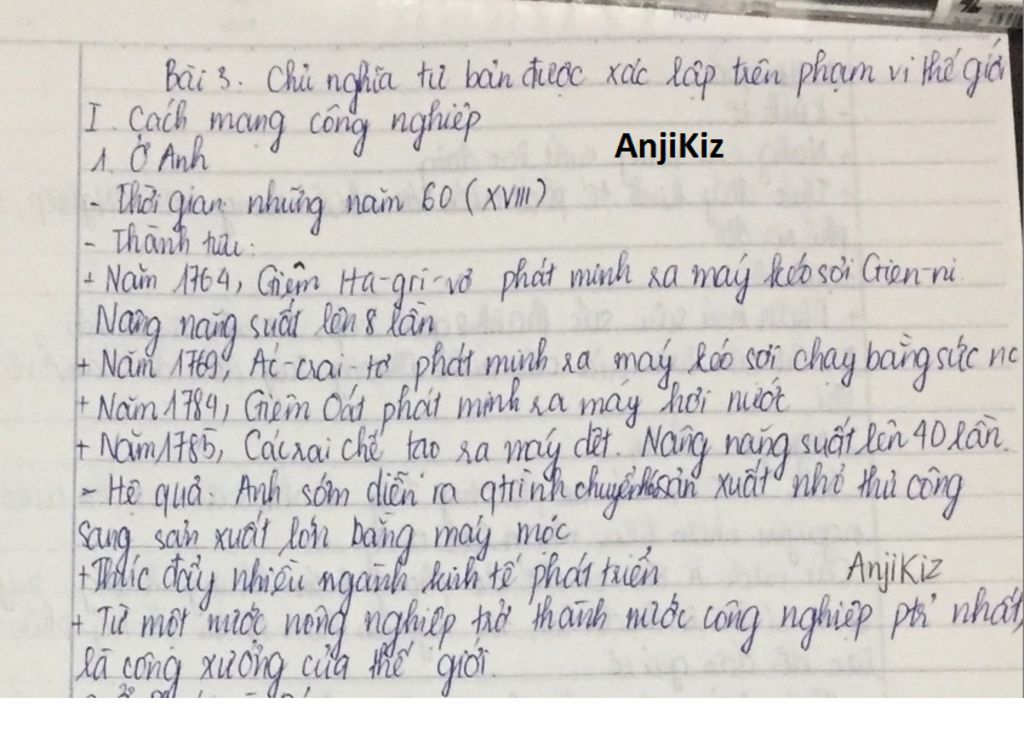 Bài 3. Chủ nghĩa tư bản được xác lập trên phạm vi thế giới
I. Cách mạng công nghiệp
AnjiKiz
1. Ở Anh
- Thời gian những năm 60 (XVIII)
- Thành tựu:
+ Năm 1764, Giêm Ha-gri-vơ phát minh ra máy kéo sợi Gien-ni.
Nâng năng suất lên 8 lần
+ Năm 1769, Ác-crai-tơ phát minh ra máy kéo sợi chạy bằng sức nc
+ Năm 1784, Giêm Oát phát minh ra máy hơi nước
+ Năm 1785, Các rai chế tạo ra máy dệt. Nâng năng suất lên 40 lần.
- Hệ quả: Anh sớm diễn ra qtrình chuyển từ sản xuất nhỏ thủ công
sang sản xuất lớn bằng máy móc
+ Thúc đẩy nhiều ngành kinh tế phát triển
AnjiKiz
+ Từ một nước nông nghiệp trở thành nước công nghiệp ptr nhất,
là công xưởng của thế giới.